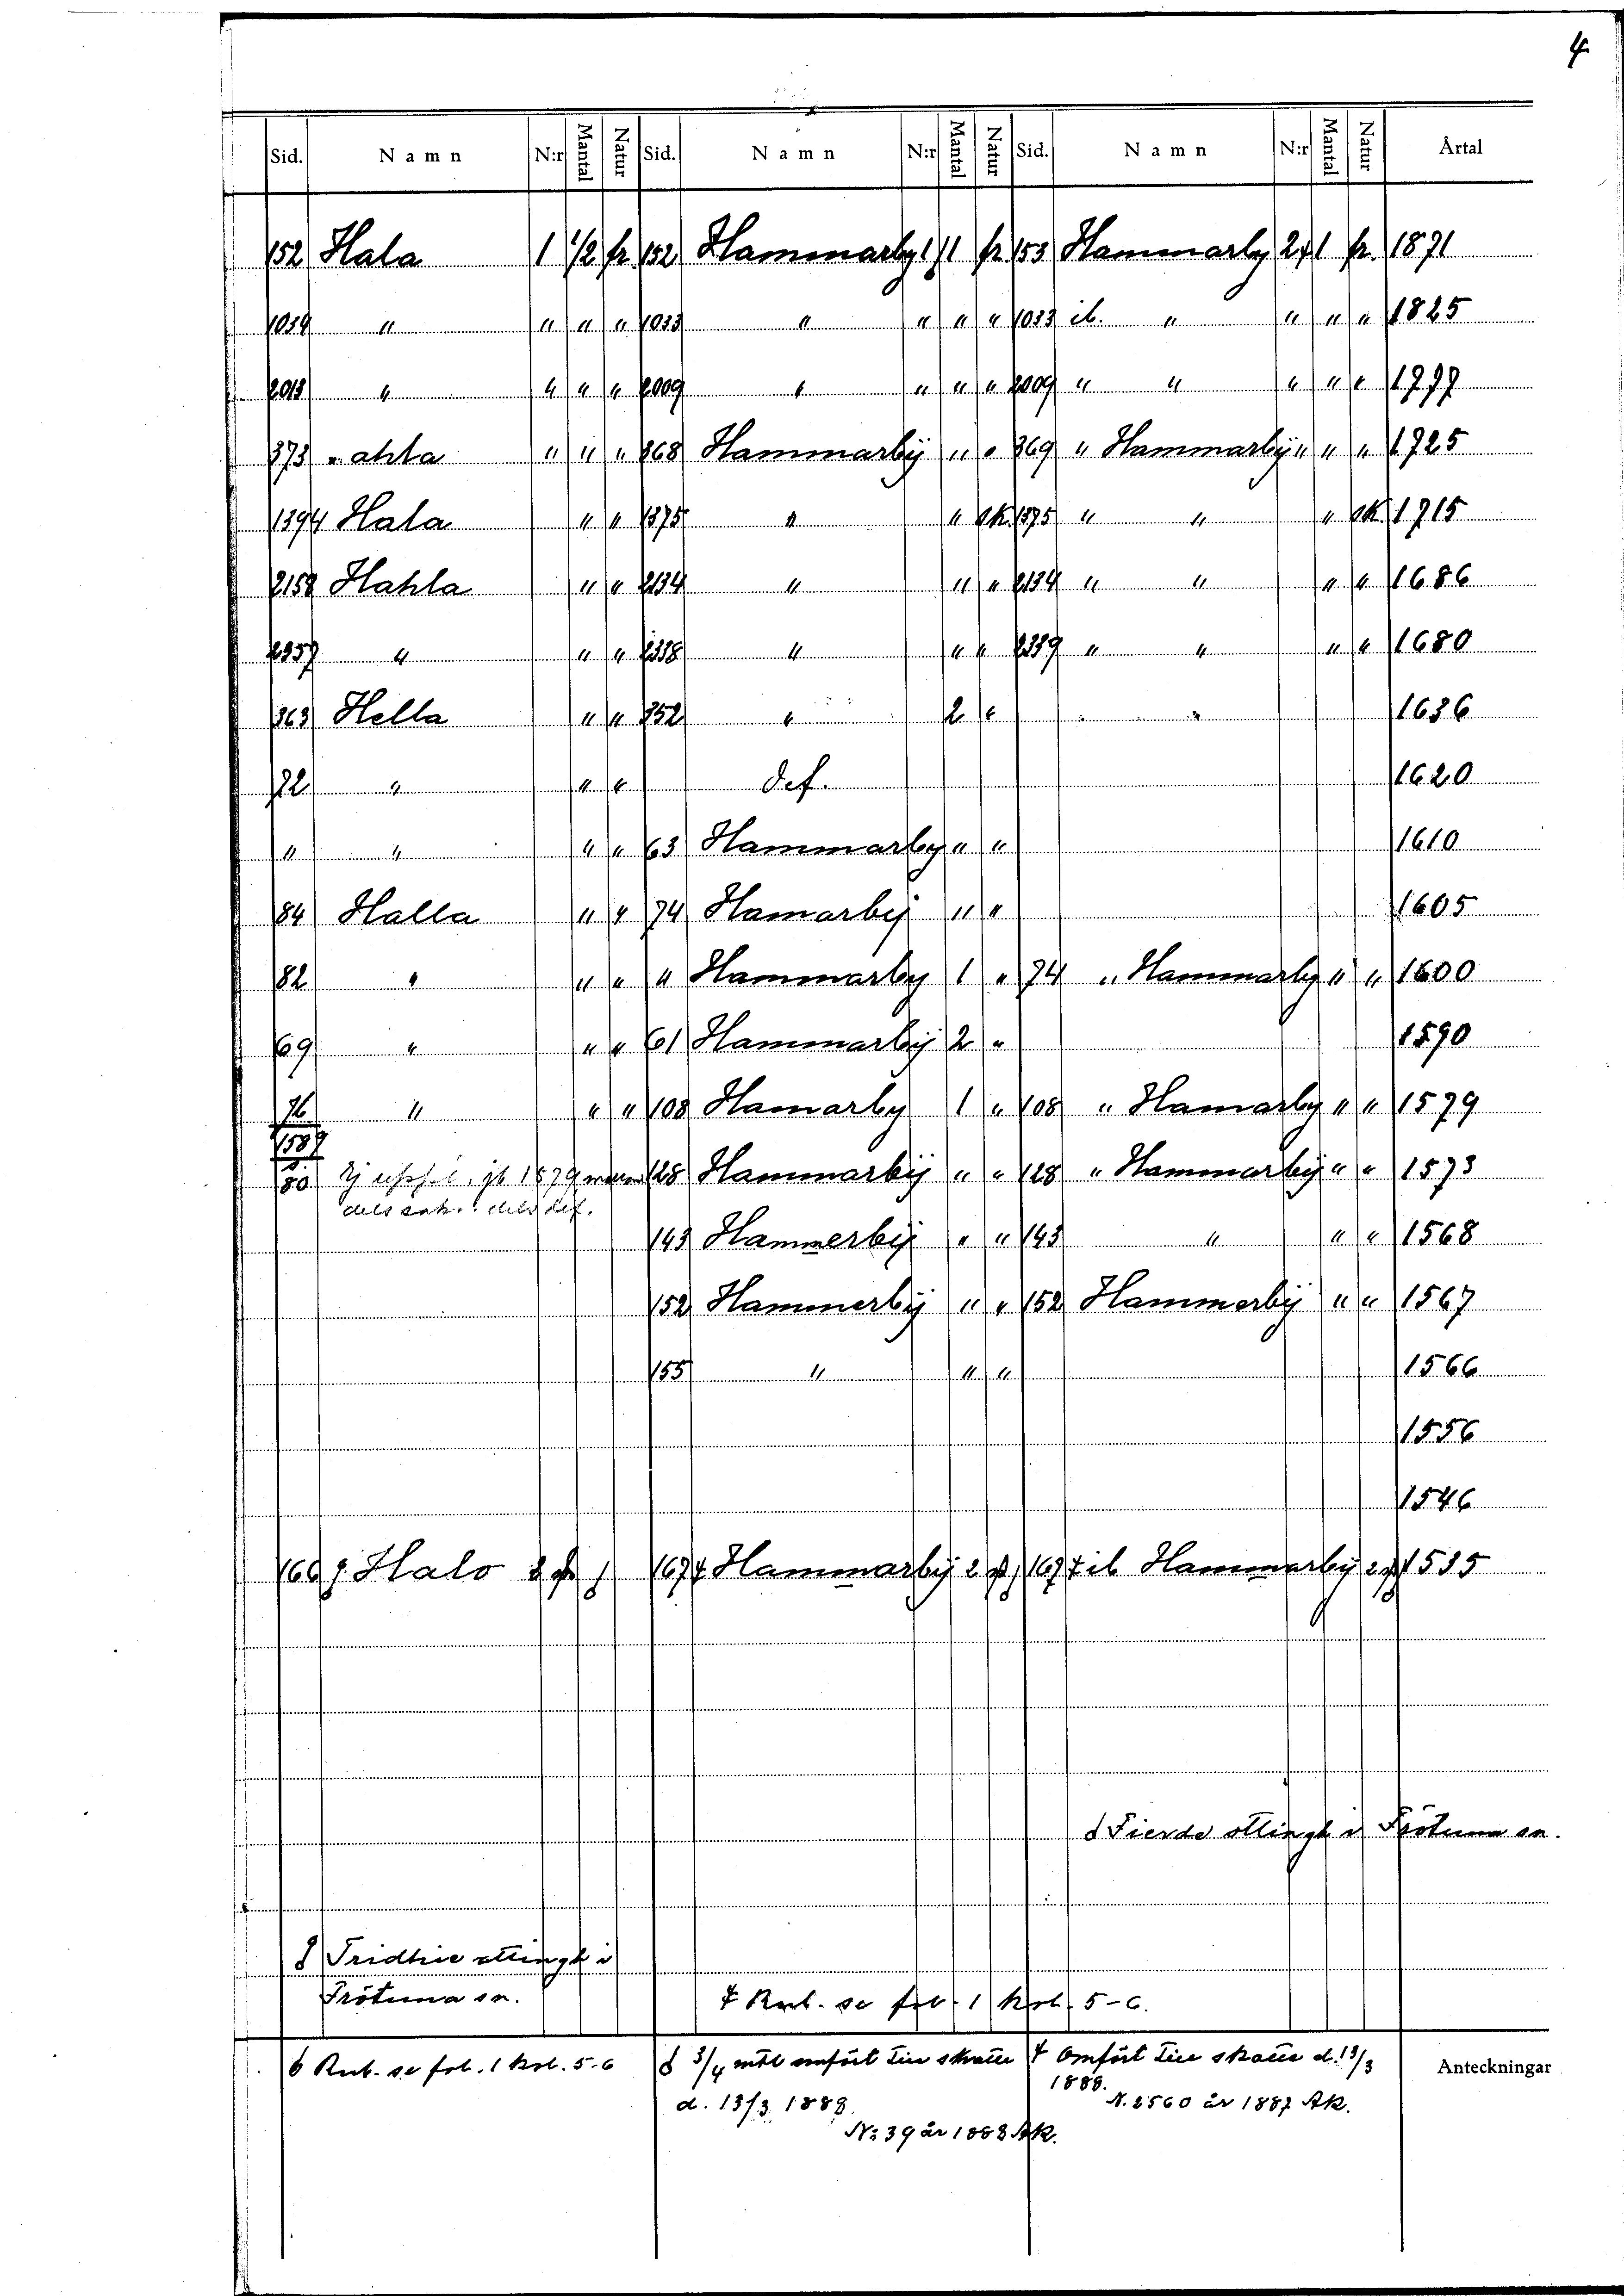 4
Sid. Namn N:r Mantal Natur Sid. Namn N:r Mantal Natur Sid. Namn N:r Mantal Natur Årtal
152 Hala 1 1/2 fr. 152 Hammarby 1 1 fr. 153 Hammarby 2 1 fr. 1871
1034 " " " " 1033 " " " " 1033 ib. " " " " 1825
2013 " " " " 2009 " " " " 2009 " " " " " 1777
373 " ahla " " " 368 Hammarbÿ " " 369 " Hammarbÿ " " " 1725
1394 Hala " " 1375 " " sk. 1375 " " " sk. 1715
2158 Hahla " " 2134 " " " 2134 " " " " 1686
2357 " " " 2338 " " " 2339 " " " " 1680
363 Hella " " 352 " 2 " 1636
72 " " " def. 1620
" " " " 63 Hammarby " " 1610
84 Halla " " 74 Hamarbÿ " " 1605
82 " " " " Hammarby 1 " 74 " Hammarby " " 1600
69 " " " 61 Hammarbÿ 2 " 1590
76 " " " 108 Hamarby 1 " 108 " Hamarby " " 1579
80 1579 128 Hammarbÿ " " 128 " Hammarbÿ " " 1573
dels def.
143 Hammerbÿ " " 143 " " " 1568
152 Hammerbÿ " " 152 Hammerbÿ " " 1567
155 " " " 1566
1556
1546
166 Halo 1 167 Hammarbÿ 2 167 ib Hammarbÿ 2 1535
Fierde ottingh i Frötuna sn.
Tridhie ottingh i
Frötuna sn.
Rub. se fol. 1 kol. 5-6.
Rub. se fol. 1 kol. 5-6 3/4 mtl omfört till skatte Omfört till skatte d. 13/3
1888.
d. 13/3 1888. N. 2560 år 1887 AK.
N: 39 år 1888 AK.
Anteckningar